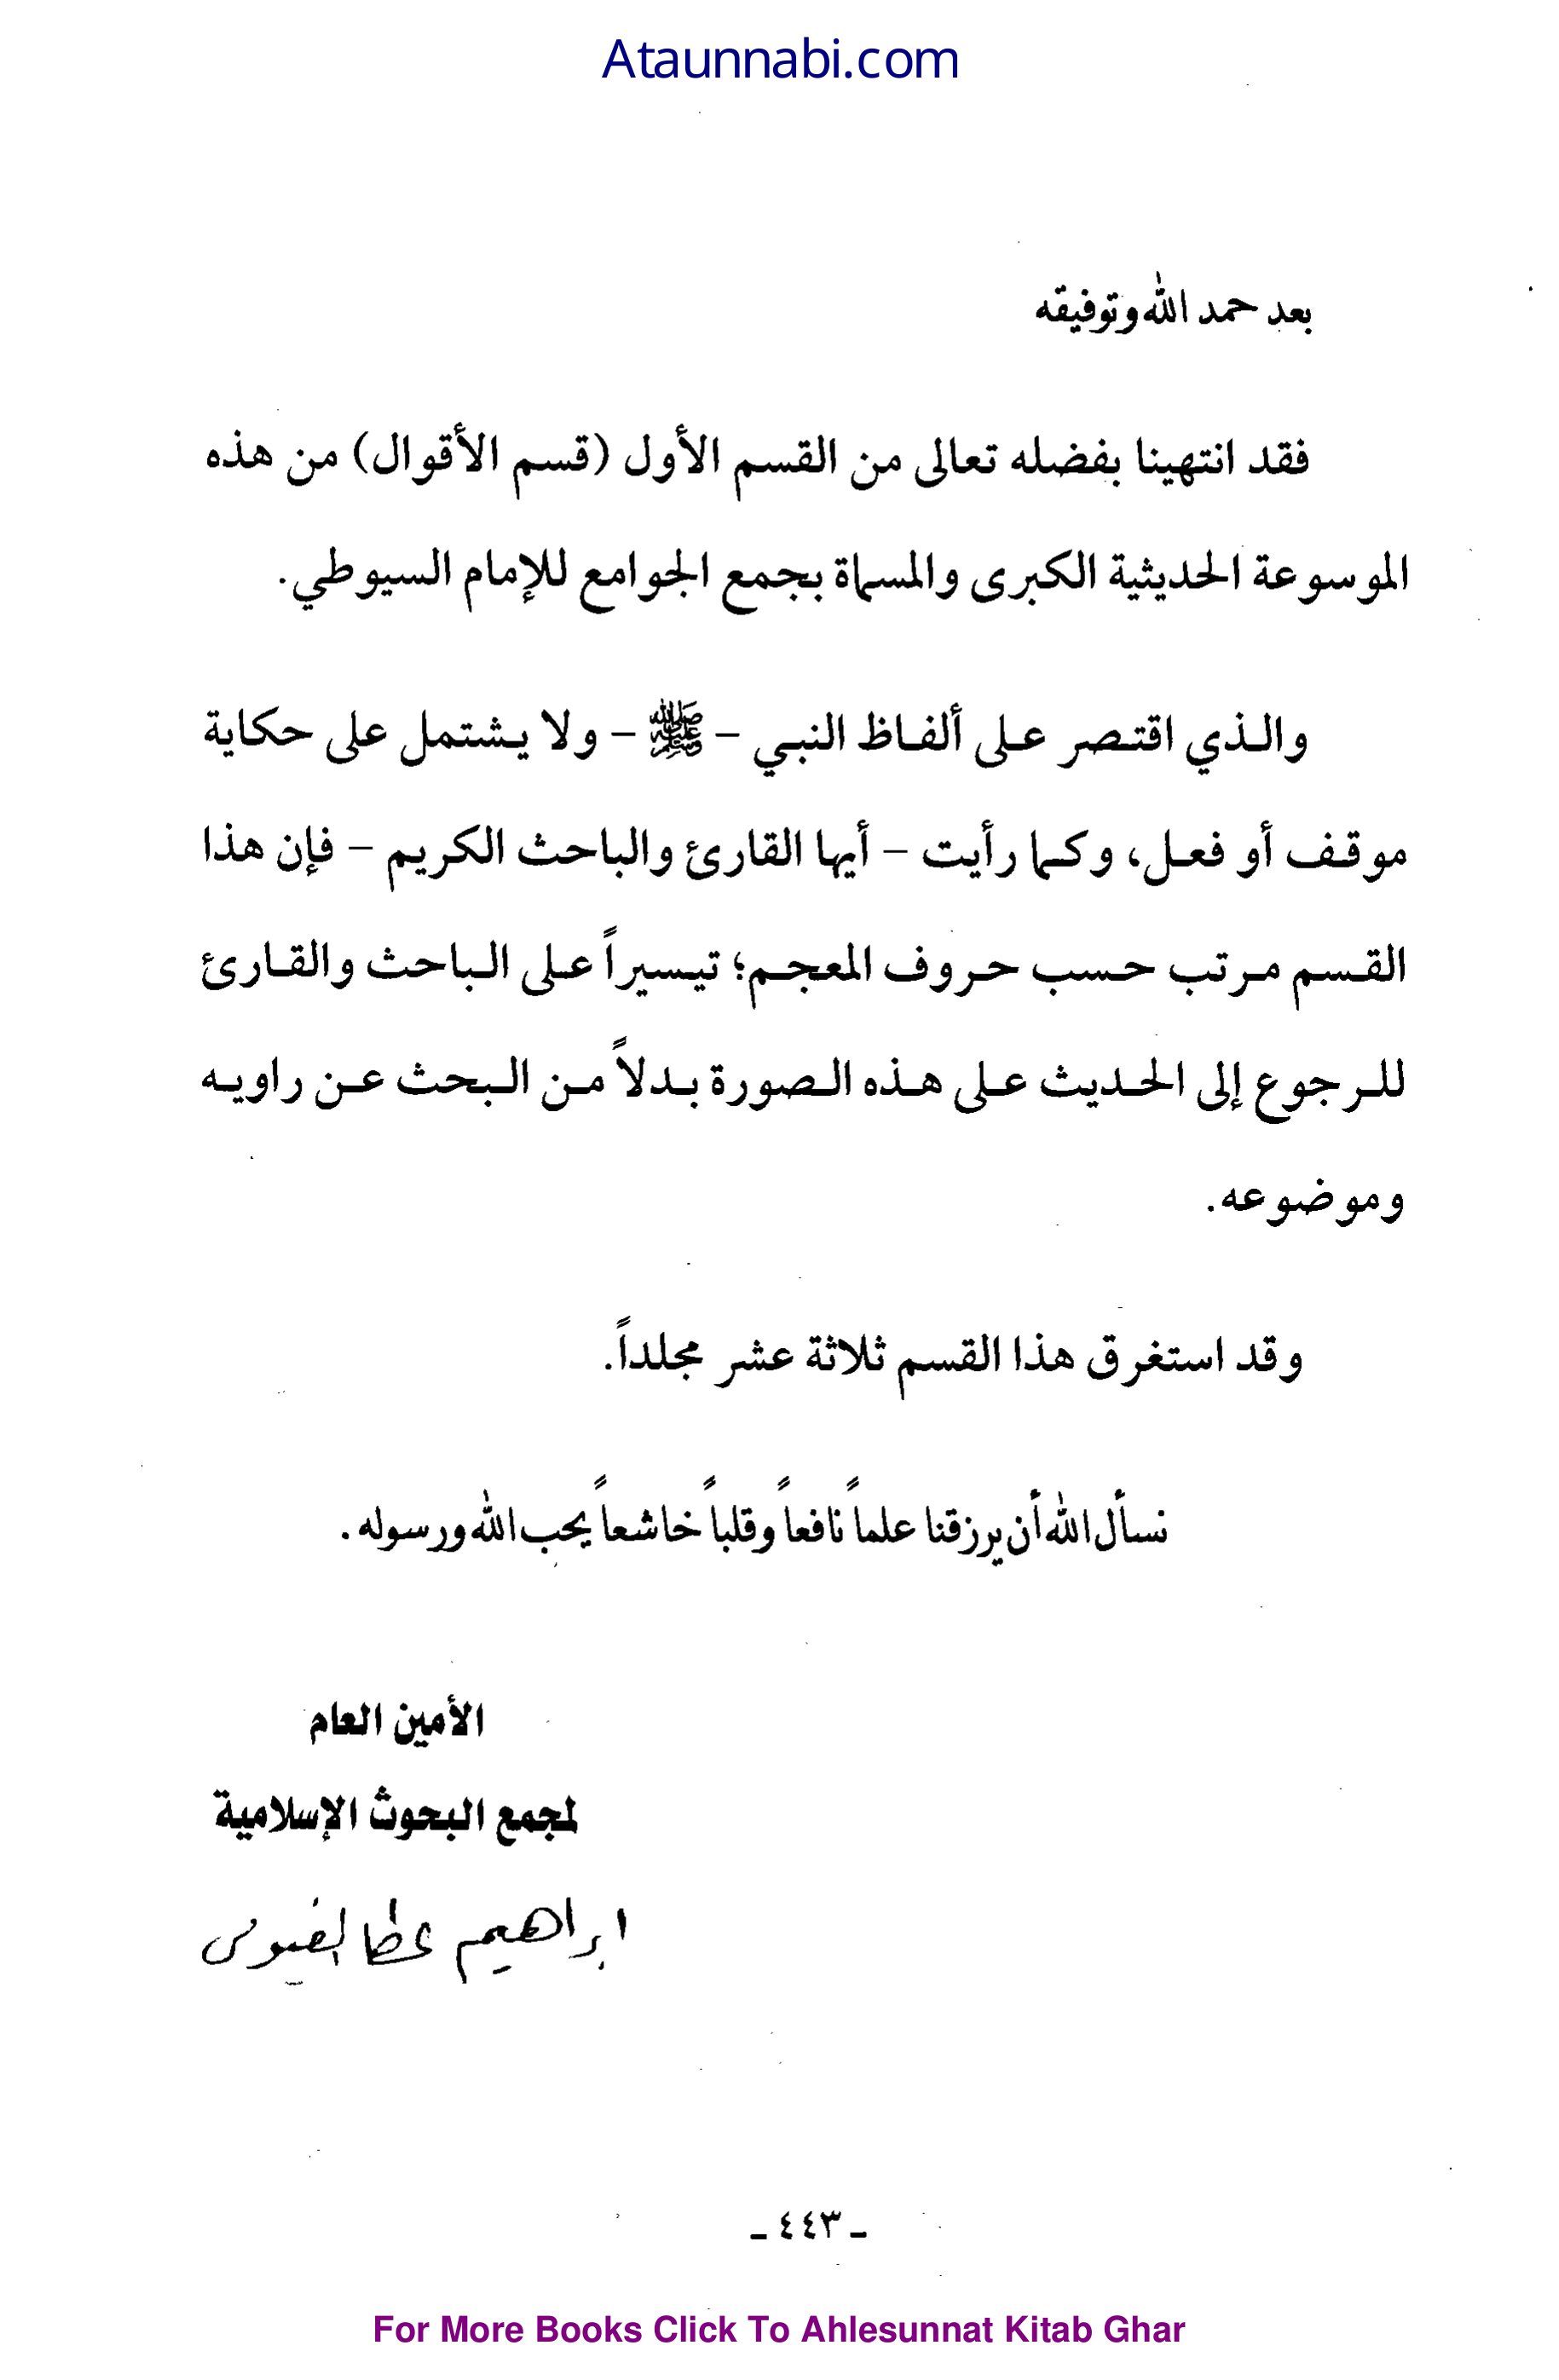 Ataunnabi.com
بعد حمد الله وتوفيقه
فقد انتهينا بفضله تعالى من القسم الأول (قسم الأقوال) من هذه
الموسوعة الحديثية الكبرى والمسماة بجمع الجوامع للإمام السيوطي.
والذي اقتصر على ألفاظ النبي – ﷺ – ولا يشتمل على حكاية
موقف أو فعل، وكما رأيت – أيها القارئ والباحث الكريم – فإن هذا
القسم مرتب حسب حروف المعجم؛ تيسيراً على الباحث والقارئ
للرجوع إلى الحديث على هذه الصورة بدلاً من البحث عن راويه
وموضوعه.
وقد استغرق هذا القسم ثلاثة عشر مجلداً.
نسأل الله أن يرزقنا علماً نافعاً وقلباً خاشعاً يحب الله ورسوله .
الأمين العام
لمجمع البحوث الإسلامية
ابراهيم عطا الفيومى
ـ ٤٤٣ ـ
For More Books Click To Ahlesunnat Kitab Ghar